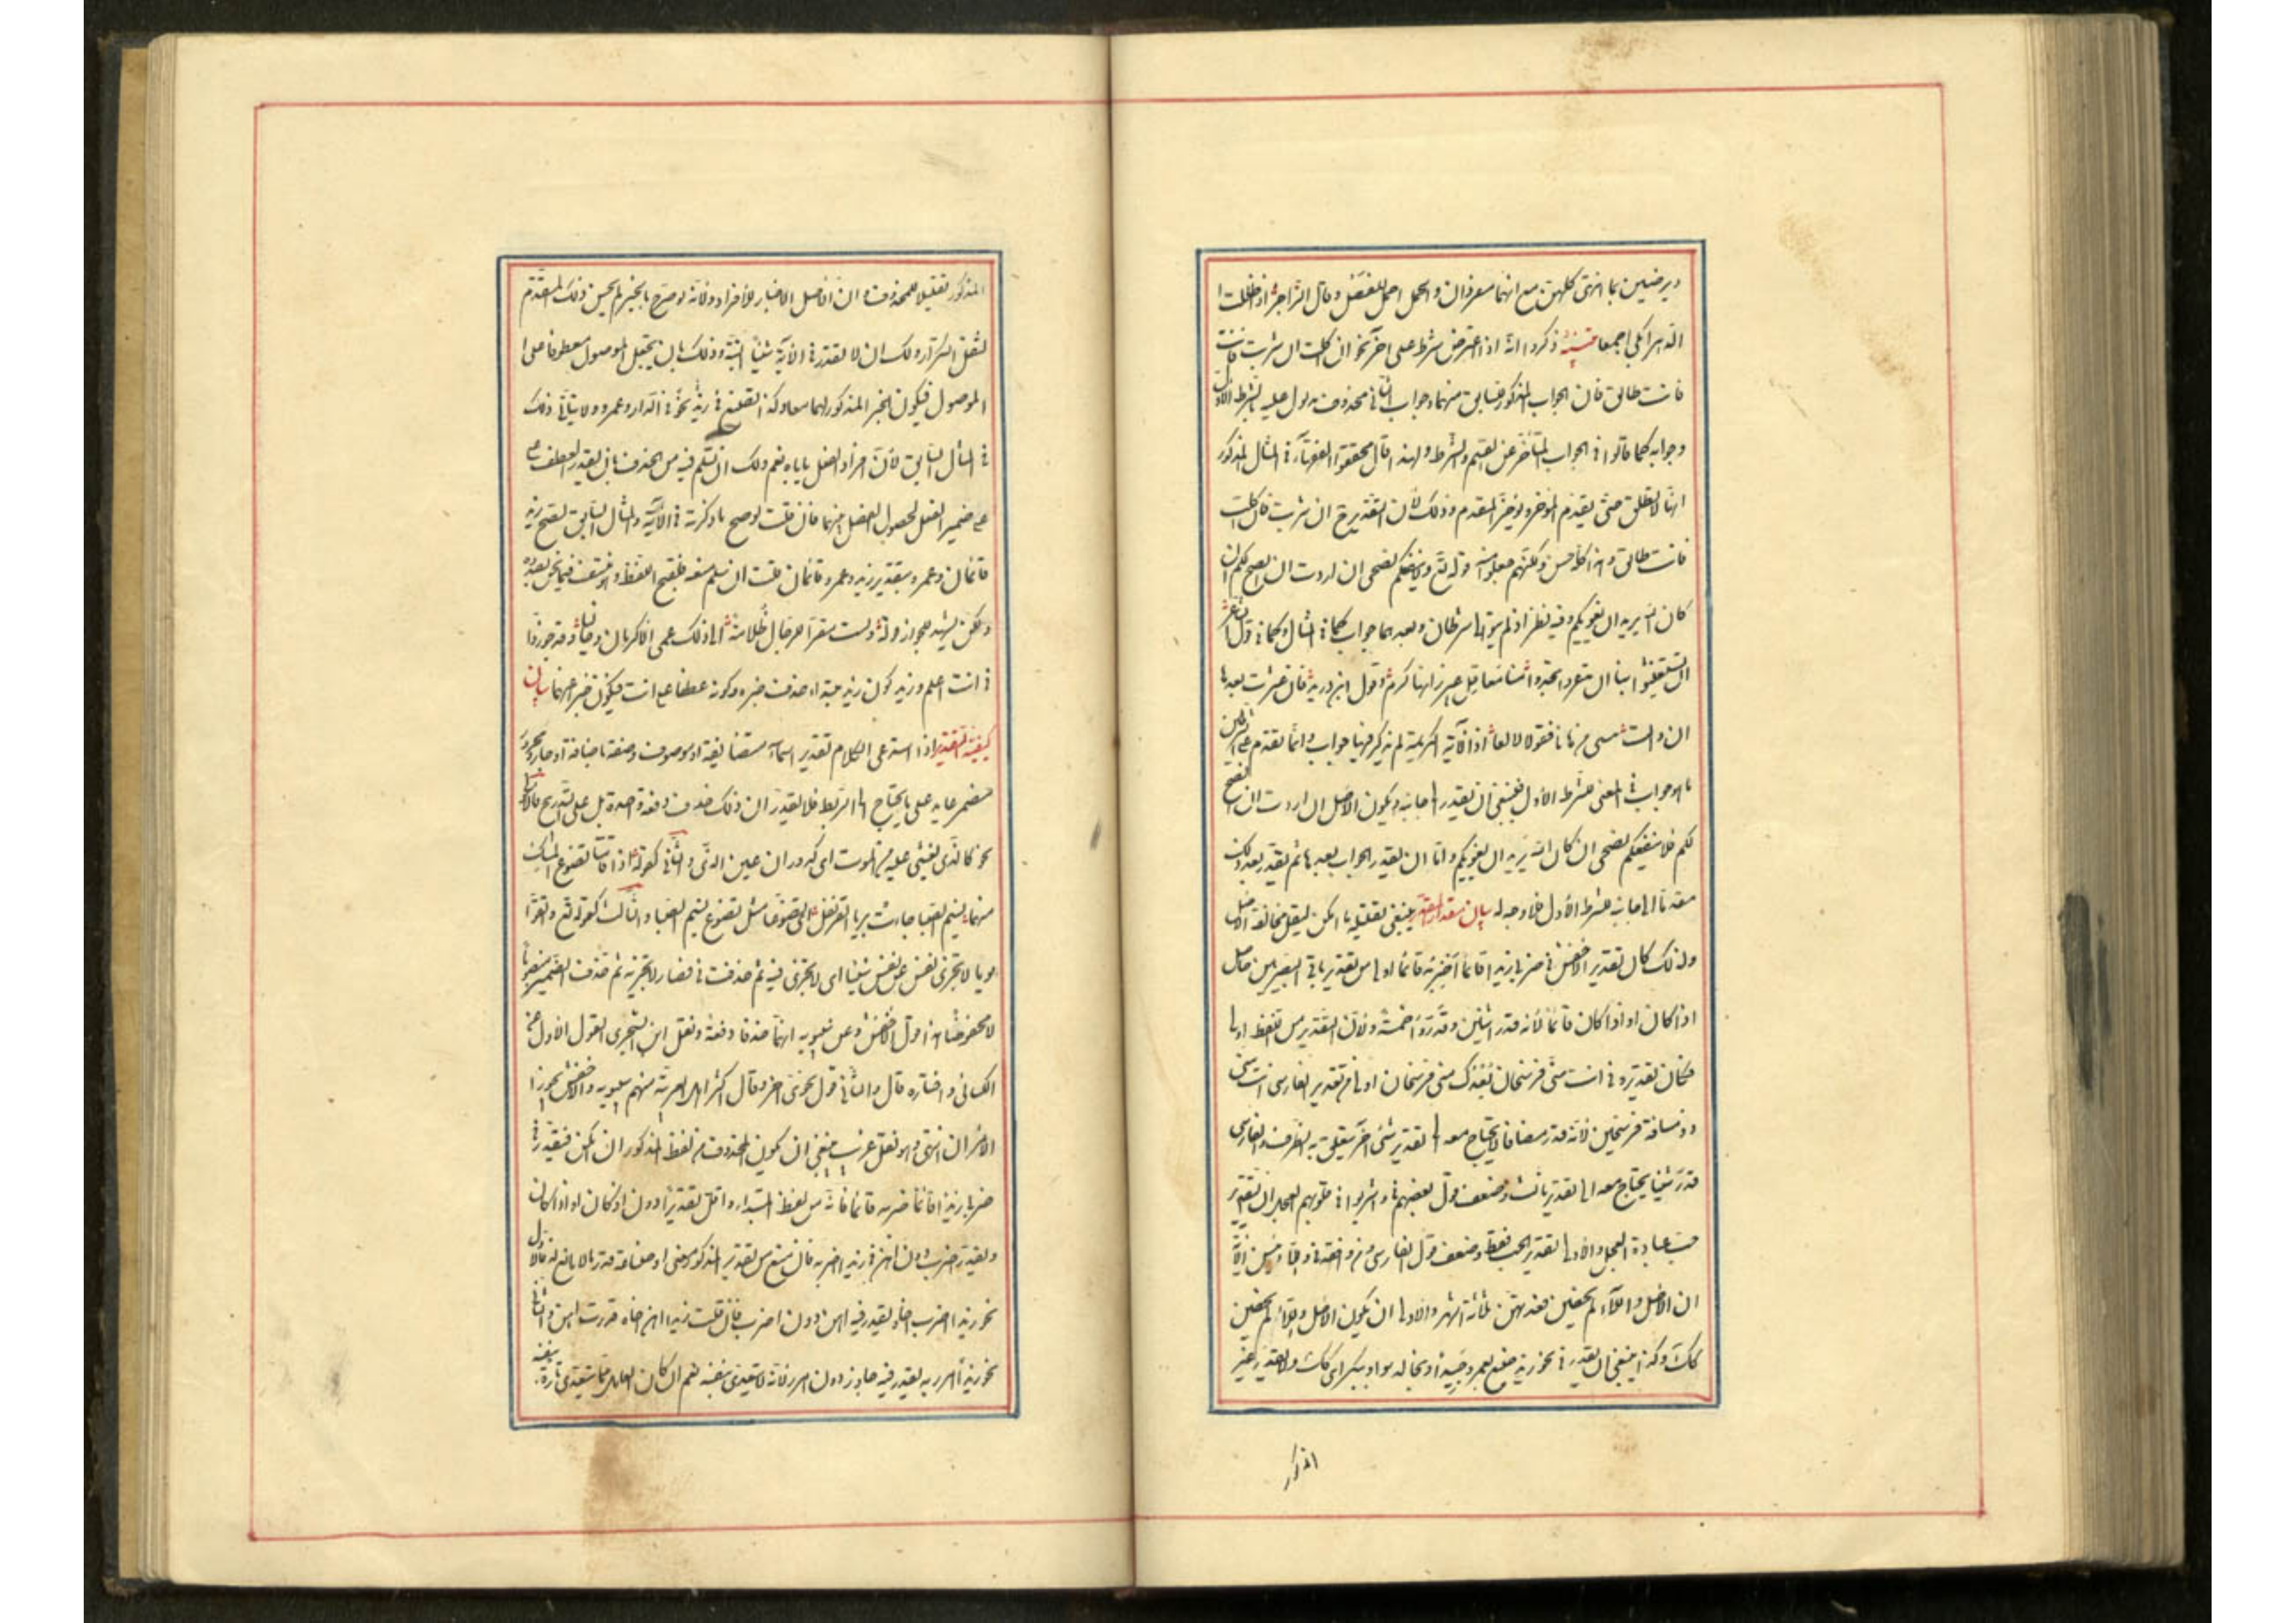 ويرضين بما اتيتهن كلهن مع انهما مفردان والجمل احمل للفصل وقال الراجز اذا ظللت ا
الدهر ابكي اجمعا تنبيه ذكروا انه اذا اعترض شرط على اخر نحو ان اكلت ان شربت فانت
فانت طالق فان الجواب المذكور للسابق منهما وجواب الثاني محذوف مدلول عليه بالشرط الاول
وجوابه كما قالوا في الجواب المتأخر عن القسم والشرط ولهذا قال محققوا الفقهاء في المثال المذكور
انها لا تطلق حتى يقدم المؤخر ويؤخر المقدم وذلك لأن التقدير ح ان شربت فان اكلت
فانت طالق وهذا كله حسن ولكنهم جعلوا منه قوله تع ولا ينفعكم نصحي ان اردت ان انصح لكم ان
كان الله يريد ان يغويكم وفيه نظر اذ لم يتوال شرطان وبعدهما جواب كما في المثال وكما في قول الشاعر
ان تستغيثوا بنا ان تذعروا تجدوا منا معاقل عز زانها كرم وقول ابن دريد فان عثرت بعدها
ان والت نفسي من هاتا فقولا لا لعا اذ الآية الكريمة لم يذكر فيها جواب وانما تقدم على الشرطين
ما هو جواب في المعنى للشرط الأول فينبغي ان يقدر الى جانبه ويكون الاصل ان اردت ان انصح
لكم فلا ينفعكم نصحي ان كان الله يريد ان يغويكم واما ان يقدر الجواب بعدهما ثم يقدر بعد ذلك
مقدما الى جانب الشرط الأول فلا وجه له بيان مقدار المقدر ينبغي تقليله ما امكن لتقل مخالفة الاصل
ولذلك كان تقدير الاخفش في ضربي زيدا قائما ضربه قائما اولى من تقدير باقي البصريين حاصل
اذا كان او اذا كان قائما لأنه قدر اثنين وقدروا خمسة ولأن التقدير من اللفظ اولى
فكان تقديره في انت مني فرسخان بعدك مني فرسخان اولى من تقدير الفارسي انت مني
ذو مسافة فرسخين لأنه قدر مضافا لا يحتاج معه الى تقدير شئ اخر يتعلق به الظرف والفارسي
قدر شيئا يحتاج معه الى تقدير ثالث وضعف قول بعضهم في واشربوا في قلوبهم العجل ان التقدير
حب عبادة العجل والاولى تقدير الحب فقط وضعف قول الفارسي ومن وافقه في واللائي يئسن الآية
ان الاصل واللآء لم يحضن فعدتهن ثلاثة اشهر والاولى ان يكون الاصل واللائي لم يحضن
كك وكذا ينبغي ان يقدر في نحو زيد صنع بعمرو جميلا وبخالد سوء او ببكر اي كك ولا يقدر عين
المذكور
المذكور تقليلا للمحذوف وان الاصل الاخبار للأفراد ولأنه لو صرح بالخبر لم يحسن ذلك المقدم
لثقل التكرار ولك ان لا تقدر في الآية شيئا البتة وذلك بان يجعل الموصول معطوفا على ا
الموصول فيكون الخبر المذكور لهما معا وكذا تصنع في زيد نحو في الدار وعمرو ولا يتأتى ذلك
في المثال السابق لأن افراد الفعل يأباه نعم ولك ان تسلم فيه من الحذف بان يقدر العطف
على ضمير الفعل لحصول الفصل بينهما فان قلت لو صح ما ذكرته في الآية والمثال السابق لصح زيد
قائمان وعمرو بتقدير زيد وعمرو قائمان قلت ان سلم منعه فلقبح اللفظ وهو منتف فيما نحن بصدده
ولكن يشهد للجواز قوله ولست مقرا للرجال ظلامة ابى ذلك عمي الاكرمان وخاليا وقد جوزوا
في انت اعلم وزيد كون زيد مبتدا حذف خبره وكونه عطفا على انت فيكون خبرا عنهما بيان
كيفية التقدير اذا استدعى الكلام تقدير اسماء متضايفة او موصوف وصفة مضافة او جار ومجرور
مضمر عايد على ما يحتاج الى الربط فلا يقدر ان ذلك حذف دفعة واحدة بل على التدريج فالاول
نحو كالذي يغشى عليه من الموت اي كدوران عين الذي والثاني كقوله اذا قامتا تضوع المسك
منهما نسيم الصبا جاءت بريا القرنفل اي تضوعا مثل تضوع نسيم الصبا والثالث كقوله تع واتقوا
يوما لا تجزي نفس عن نفس شيئا اي لا تجزي فيه ثم حذفت في فصار لا تجزيه ثم حذف الضمير منصوبا
لا مخفوضا هذا قول الاخفش وعن سيبويه انهما حذفا دفعة ونقل ابن الشجري القول الاول عن
الكسائي واختاره قال والثاني قول نحوي اخر وقال اكثر اهل العربية منهم سيبويه والاخفش يجوز ا
الأمران انتهى وهو نقل غريب ينبغي ان يكون المحذوف من لفظ المذكور ان امكن فيقدر في
ضربي زيدا قائما ضربه قائما فانه من لفظ المبتداء واقل تقديرا دون اذ كان او اذا كان
ويقدر اضرب دون اهن في زيدا اضربه فان منع من تقدير المذكور معنى او صناعة قدر ما لا مانع له فالاول
نحو زيدا اضرب اخاه يقدر فيه اهن دون اضرب فان قلت زيدا اهن اخاه قدرت اهن والثاني
نحو زيدا امرر به يقدر فيه جاوز دون امرر لأنه لا يتعدى بنفسه نعم ان كان العامل مما يتعدى تارة بنفسه